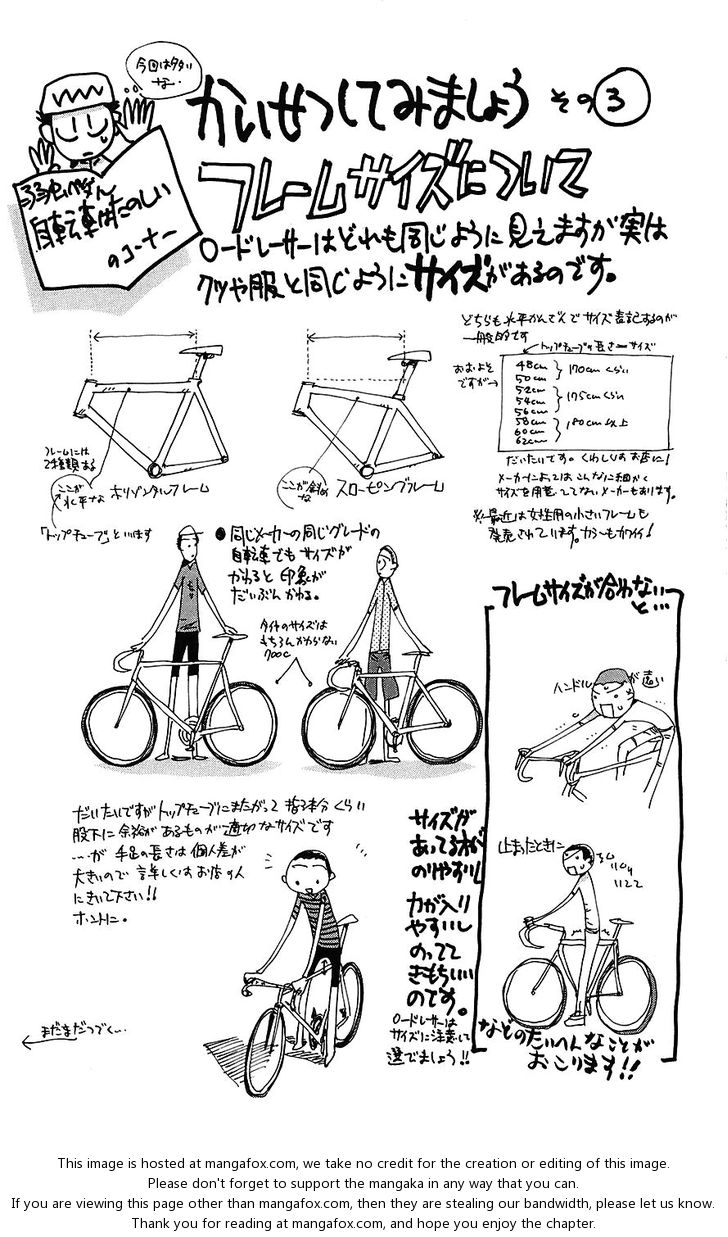 今回はタタい
な…
かいせつしてみましょう その3
弱虫ペダル
自転車はたのしい
のコーナー
フレームサイズについて
ロードレーサーはどれも同じように見えますが実は
クツや服と同じようにサイズがあるのです。
フレームには
2種類ある
ここが
水平な ホリゾンタルフレーム
「トップチューブ」といいます
ここが斜め
な スローピングフレーム
どちらも水平かんさんでサイズ表記するのが
一般的です
トップチューブの長さ=サイズ
おおよそ
ですが→
48cm
50cm
170cmくらい
52cm
54cm
56cm
175cmくらい
58cm
60cm
62cm
180cm以上
だいたいです。くわしくはお店に!
メーカーによってはこんなに細かく
サイズを用意してないメーカーもあります。
※最近は女性用の小さいフレームも
発売されています。カラーもカワイイ!
●同じメーカーの同じグレードの
自転車でもサイズが
かわると印象が
だいぶんかわる。
タイヤのサイズは
もちろんかわらない
700C
フレームサイズが合わない
と…
ハンドルが遠い
止まったときに
などのたいへんなことが
おこります!!
だいたいですがトップチューブにまたがって指3本分くらい
股下に余裕があるものが適切なサイズです
…が 手足の長さは個人差が
大きいので 詳しくはお店の人
にきいて下さい!!
ホントに。
サイズが
あってる方が
のりやすいし
力が入り
やすいし
のってて
きもちいい
のです。
ロードレーサーは
サイズに注意して
選びましょう!!
まだまだつづく…
This image is hosted at mangafox.com, we take no credit for the creation or editing of this image.
Please don't forget to support the mangaka in any way that you can.
If you are viewing this page other than mangafox.com, then they are stealing our bandwidth, please let us know.
Thank you for reading at mangafox.com, and hope you enjoy the chapter.